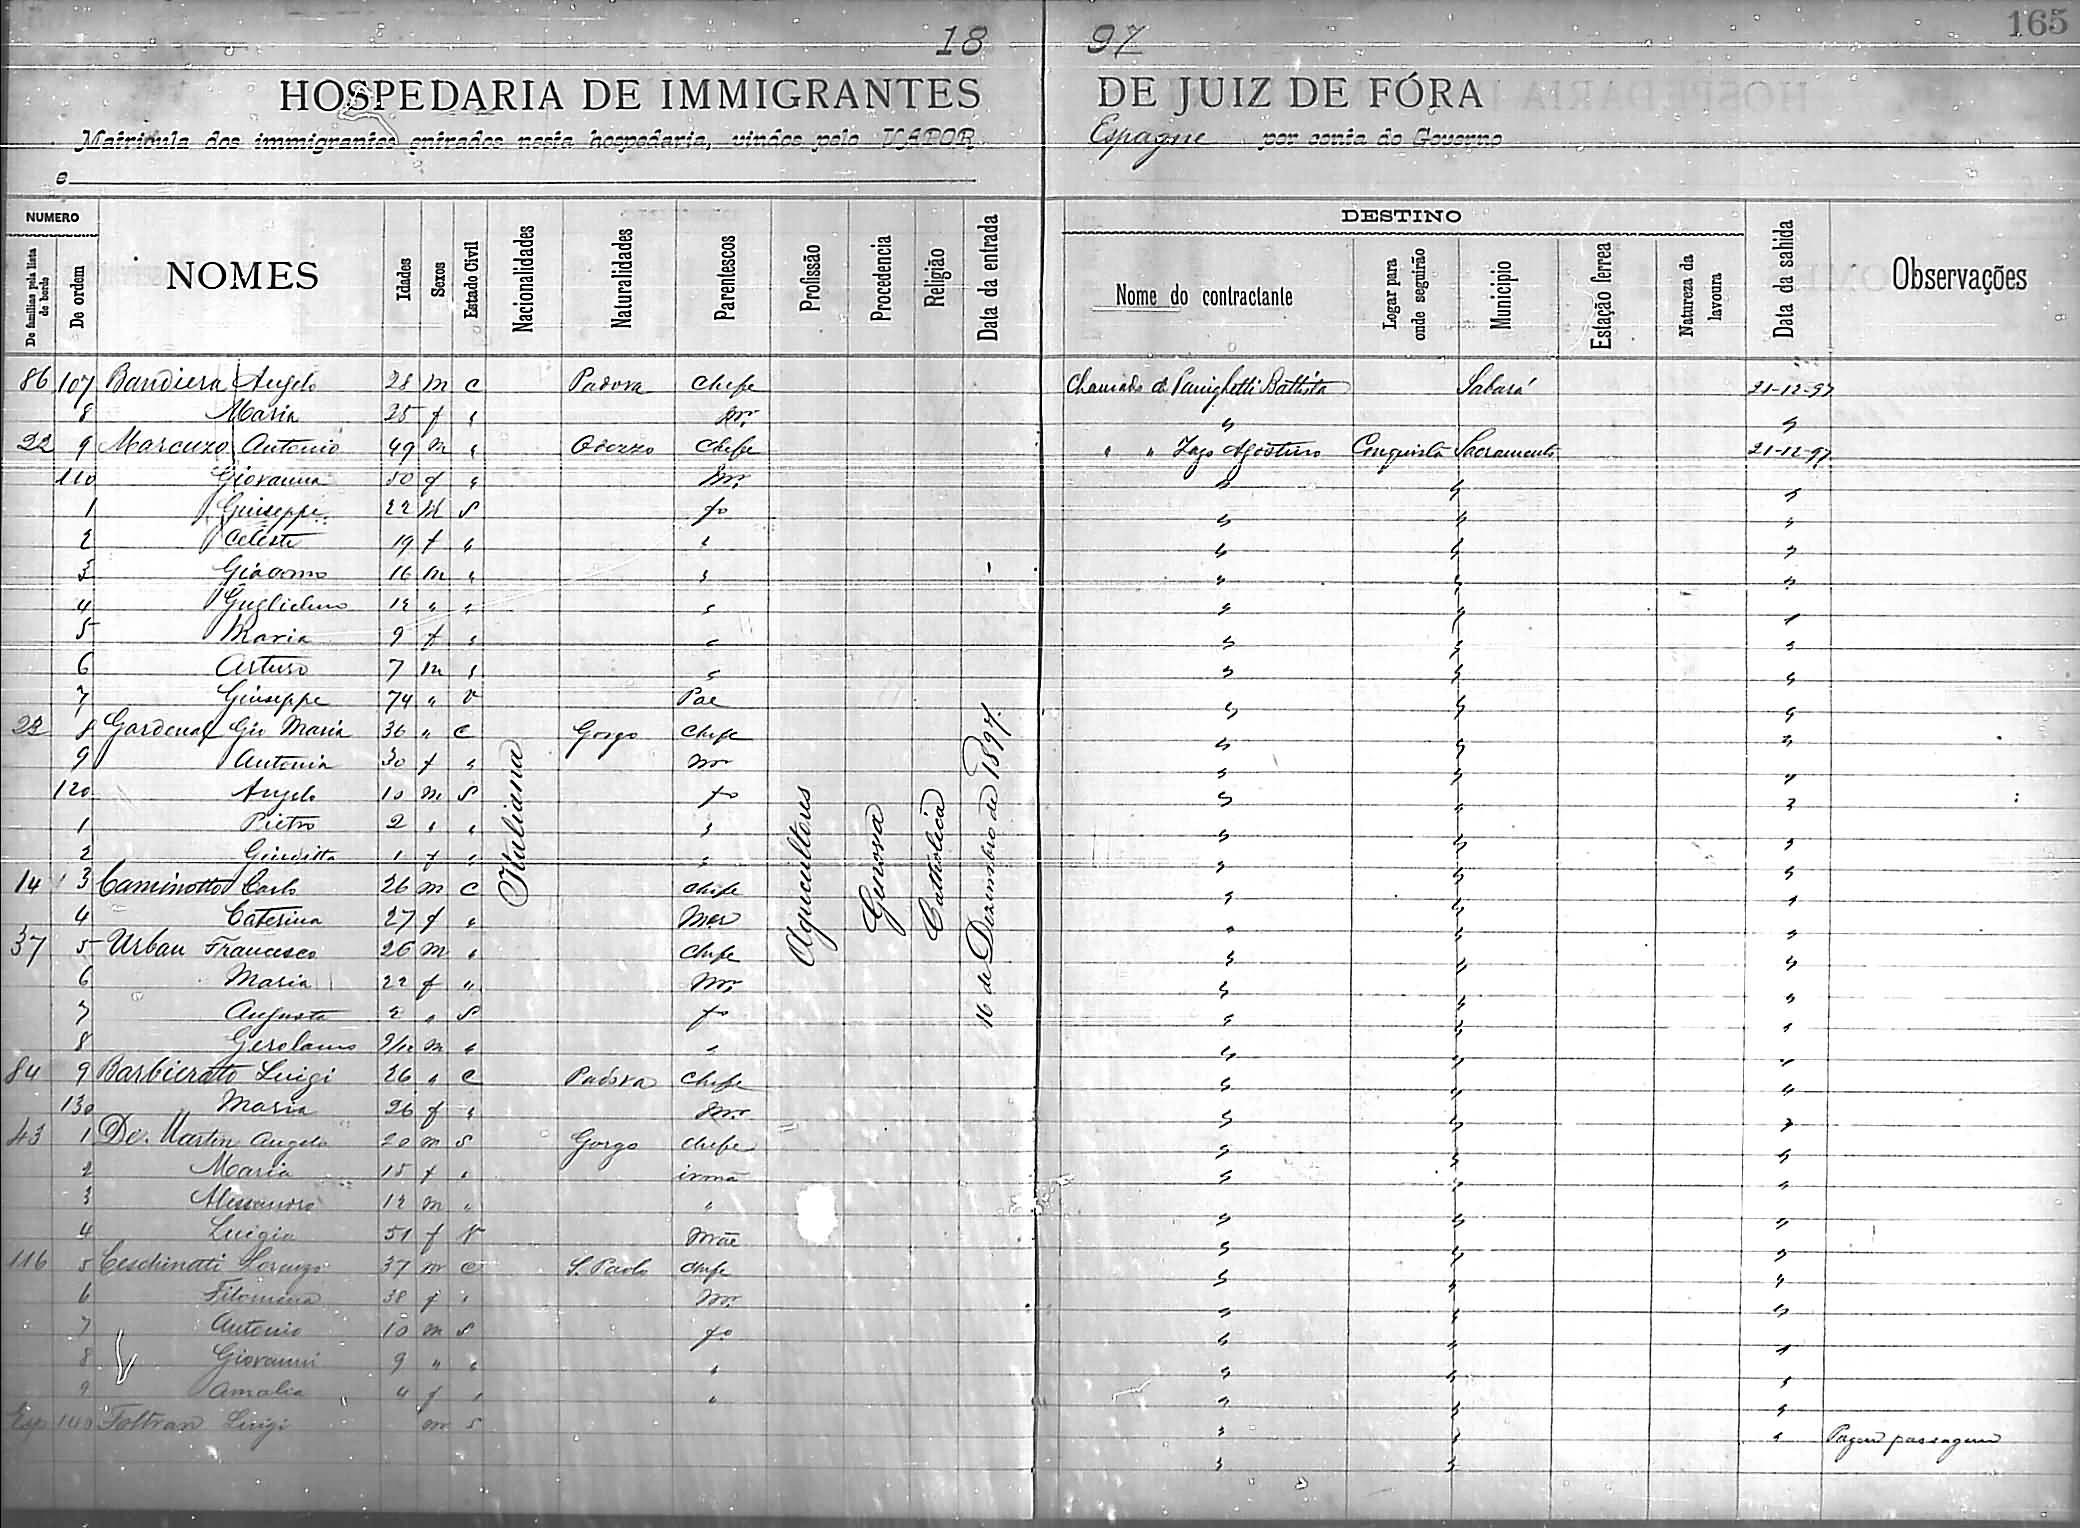 165
18 97
HOSPEDARIA DE IMMIGRANTES DE JUIZ DE FÓRA
Matricula dos immigrantes entrados nesta hospedaria, vindos pelo VAPOR Espagne por conta do Governo
e
NUMERO
De familias pela lista de bordo
De ordem
NOMES
Idades
Sexos
Estado Civil
Nacionalidades
Naturalidades
Parentescos
Profissão
Procedencia
Religião
Data da entrada
DESTINO
Nome do contractante
Logar para onde seguirão
Municipio
Estação ferrea
Natureza da lavoura
Data da sahida
Observações
86 107 Bandiera Angelo 28 m c Padova Chefe Chamado de Panighetti Battista Sabará 21-12-97
8 Maria 25 f " mr "
22 9 Marcuzo Antonio 49 m " Oderzo Chefe " " Zago Agostino Conquista Sacramento 21-12-97
110 Giovanna 50 f " mr " " "
1 Giuseppe 22 M S fo " " "
2 Celeste 19 f " " " " "
3 Giacomo 16 m " " " " "
4 Guglielmo 12 " " " " " "
5 Maria 9 f " " " " "
6 Arturo 7 m " " " " "
7 Giuseppe 74 " V Pae " " "
23 8 Gardenal Gio Maria 36 " C Gorgo Chefe " " "
9 Antonia 30 f " mr " " "
120 Angelo 10 m S fo " " "
1 Pietro 2 " " " " " "
2 Giuditta 1 f " " " " "
14 3 Caminotto Carlo 26 m C Chefe " " "
4 Caterina 27 f " Mer " " "
37 5 Urban Francesco 26 m " Chefe " " "
6 Maria 22 f " mr " " "
7 Augusta 2 " S fo " " "
8 Gerolamo 9/12 m " " " " "
84 9 Barbierato Luigi 26 " C Padova Chefe " " "
130 Maria 26 f " mr " " "
43 1 De Martin Angelo 20 m S Gorgo Chefe " " "
2 Maria 15 f " irmã " " "
3 Alessandro 12 m " " " " "
4 Luigia 51 f V Mãe " " "
116 5 Ceschinati Lorenzo 37 m C S. Paolo Chefe " " "
6 Filomena 38 f " mr " " "
7 Antonio 10 m S fo " " "
8 Giovanni 9 " " " " " "
9 Amalia 4 f " " " " "
Esp 140 Foltran Luigi m S " " " Pagou passagem
Italiana
Agricultores
Genova
Catholica
16 de Dezembro de 1897.